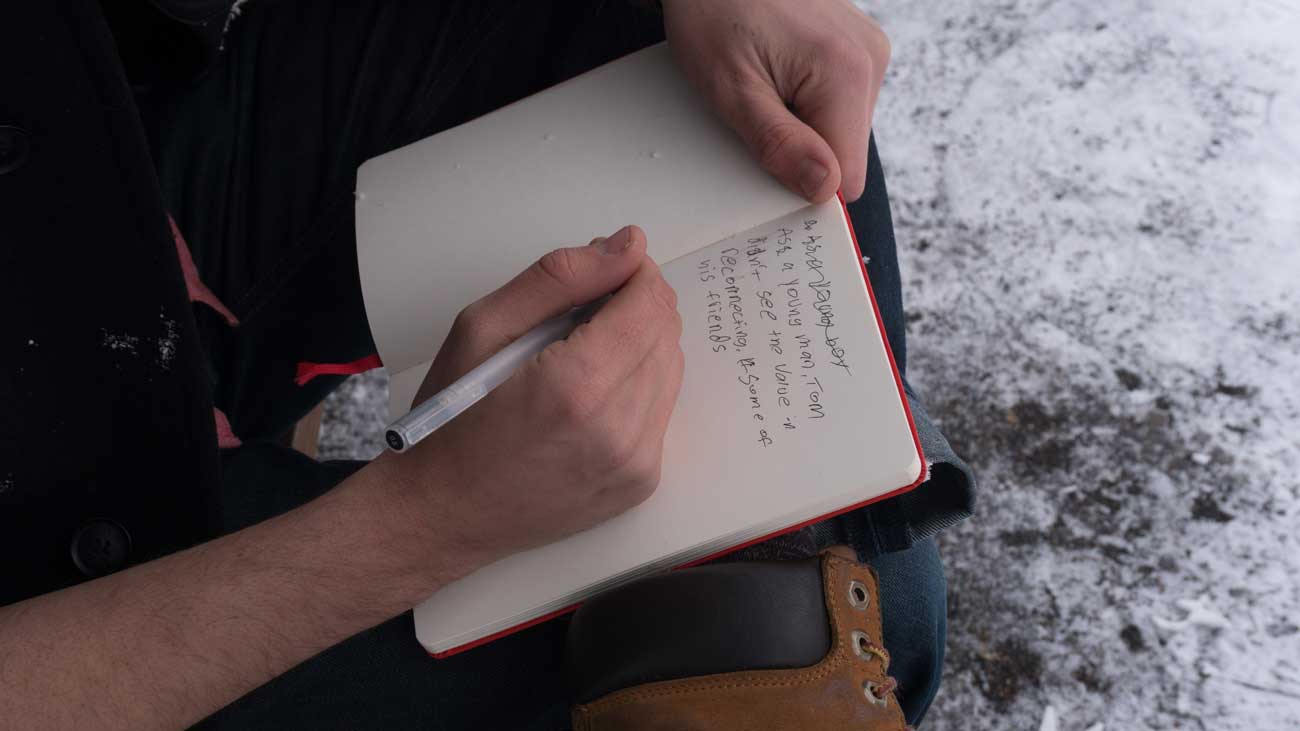 Ass a young man, Tom
didn't see the value in
reconnecting, Some of
his friends